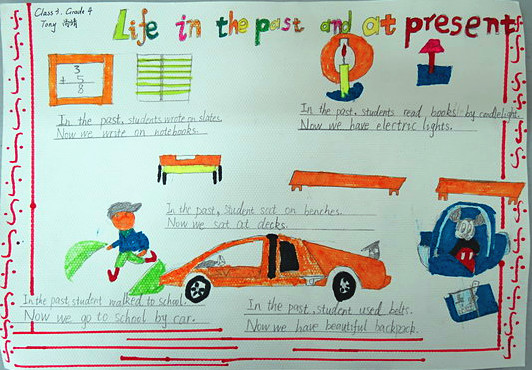 Class 3, Grade 4
Tony
Life in the past and at present
3
+ 5
8
In the past, students wrote on slates.
Now we write on notebooks.
In the past, students read books by candlelight.
Now we have electric lights.
In the past, student sat on benches.
Now we sat at decks.
In the past, student walked to school.
Now we go to school by car.
In the past, student used belts.
Now we have beautiful backpack.